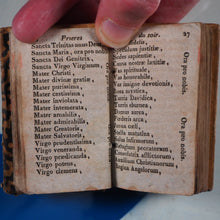 Prieres
Sancta Trinitas unus Deus
Sancta Maria, ora pro nobis
Sancta Dei Genitrix,
Sancta Virgo Virginum,
Mater Christi,
Mater divinæ gratiæ,
Mater purissima,
Mater castissima,
Mater inviolata,
Mater intemerata,
Mater amabilis,
Mater admirabilis,
Mater Creatoris,
Mater Salvatoris,
Virgo prudentissima,
Virgo veneranda,
Virgo prædicanda,
Virgo potens,
Virgo clemens,
soir. 37
justitiæ,
sapientiæ,
lætitiæ,
Vas spirituale,
Vas honorabile,
Vas insigne devotionis,
Rosa mystica,
Turris Davidica,
Turris eburnea,
Domus aurea,
Fœderis arca,
Janua cœli,
Stella matutina,
Salus infirmorum,
Refugium peccatorum,
Consolatrix afflictorum,
Auxilium Christianorum,
Regina Angelorum,
Ora pro nobis.
Ora pro nobis.